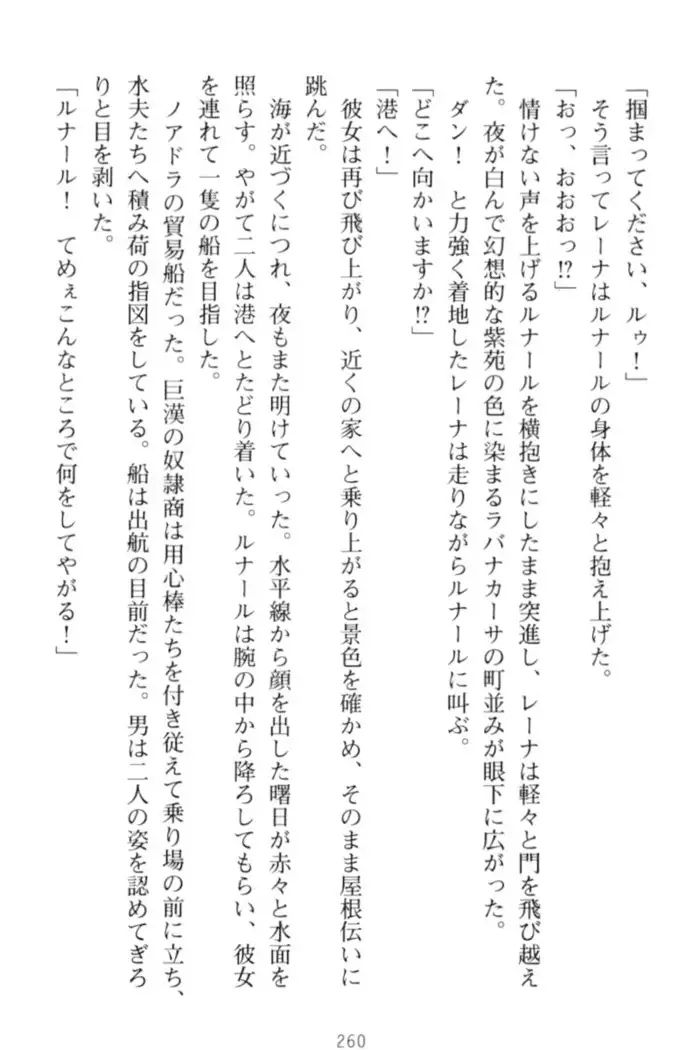 「掴まってください、ルゥ！」
そう言ってレーナはルナールの身体を軽々と抱え上げた。
「おっ、おおおっ!?」
情けない声を上げるルナールを横抱きにしたまま突進し、レーナは軽々と門を飛び越え
た。夜が白んで幻想的な紫苑の色に染まるラバナカーサの町並みが眼下に広がった。
ダン！　と力強く着地したレーナは走りながらルナールに叫ぶ。
「どこへ向かいますか!?」
「港へ！」
彼女は再び飛び上がり、近くの家へと乗り上がると景色を確かめ、そのまま屋根伝いに
跳んだ。
海が近づくにつれ、夜もまた明けていった。水平線から顔を出した曙日が赤々と水面を
照らす。やがて二人は港へとたどり着いた。ルナールは腕の中から降ろしてもらい、彼女
を連れて一隻の船を目指した。
ノアドラの貿易船だった。巨漢の奴隷商は用心棒たちを付き従えて乗り場の前に立ち、
水夫たちへ積み荷の指図をしている。船は出航の目前だった。男は二人の姿を認めてぎろ
りと目を剥いた。
「ルナール！　てめぇこんなところで何をしてやがる！」
260